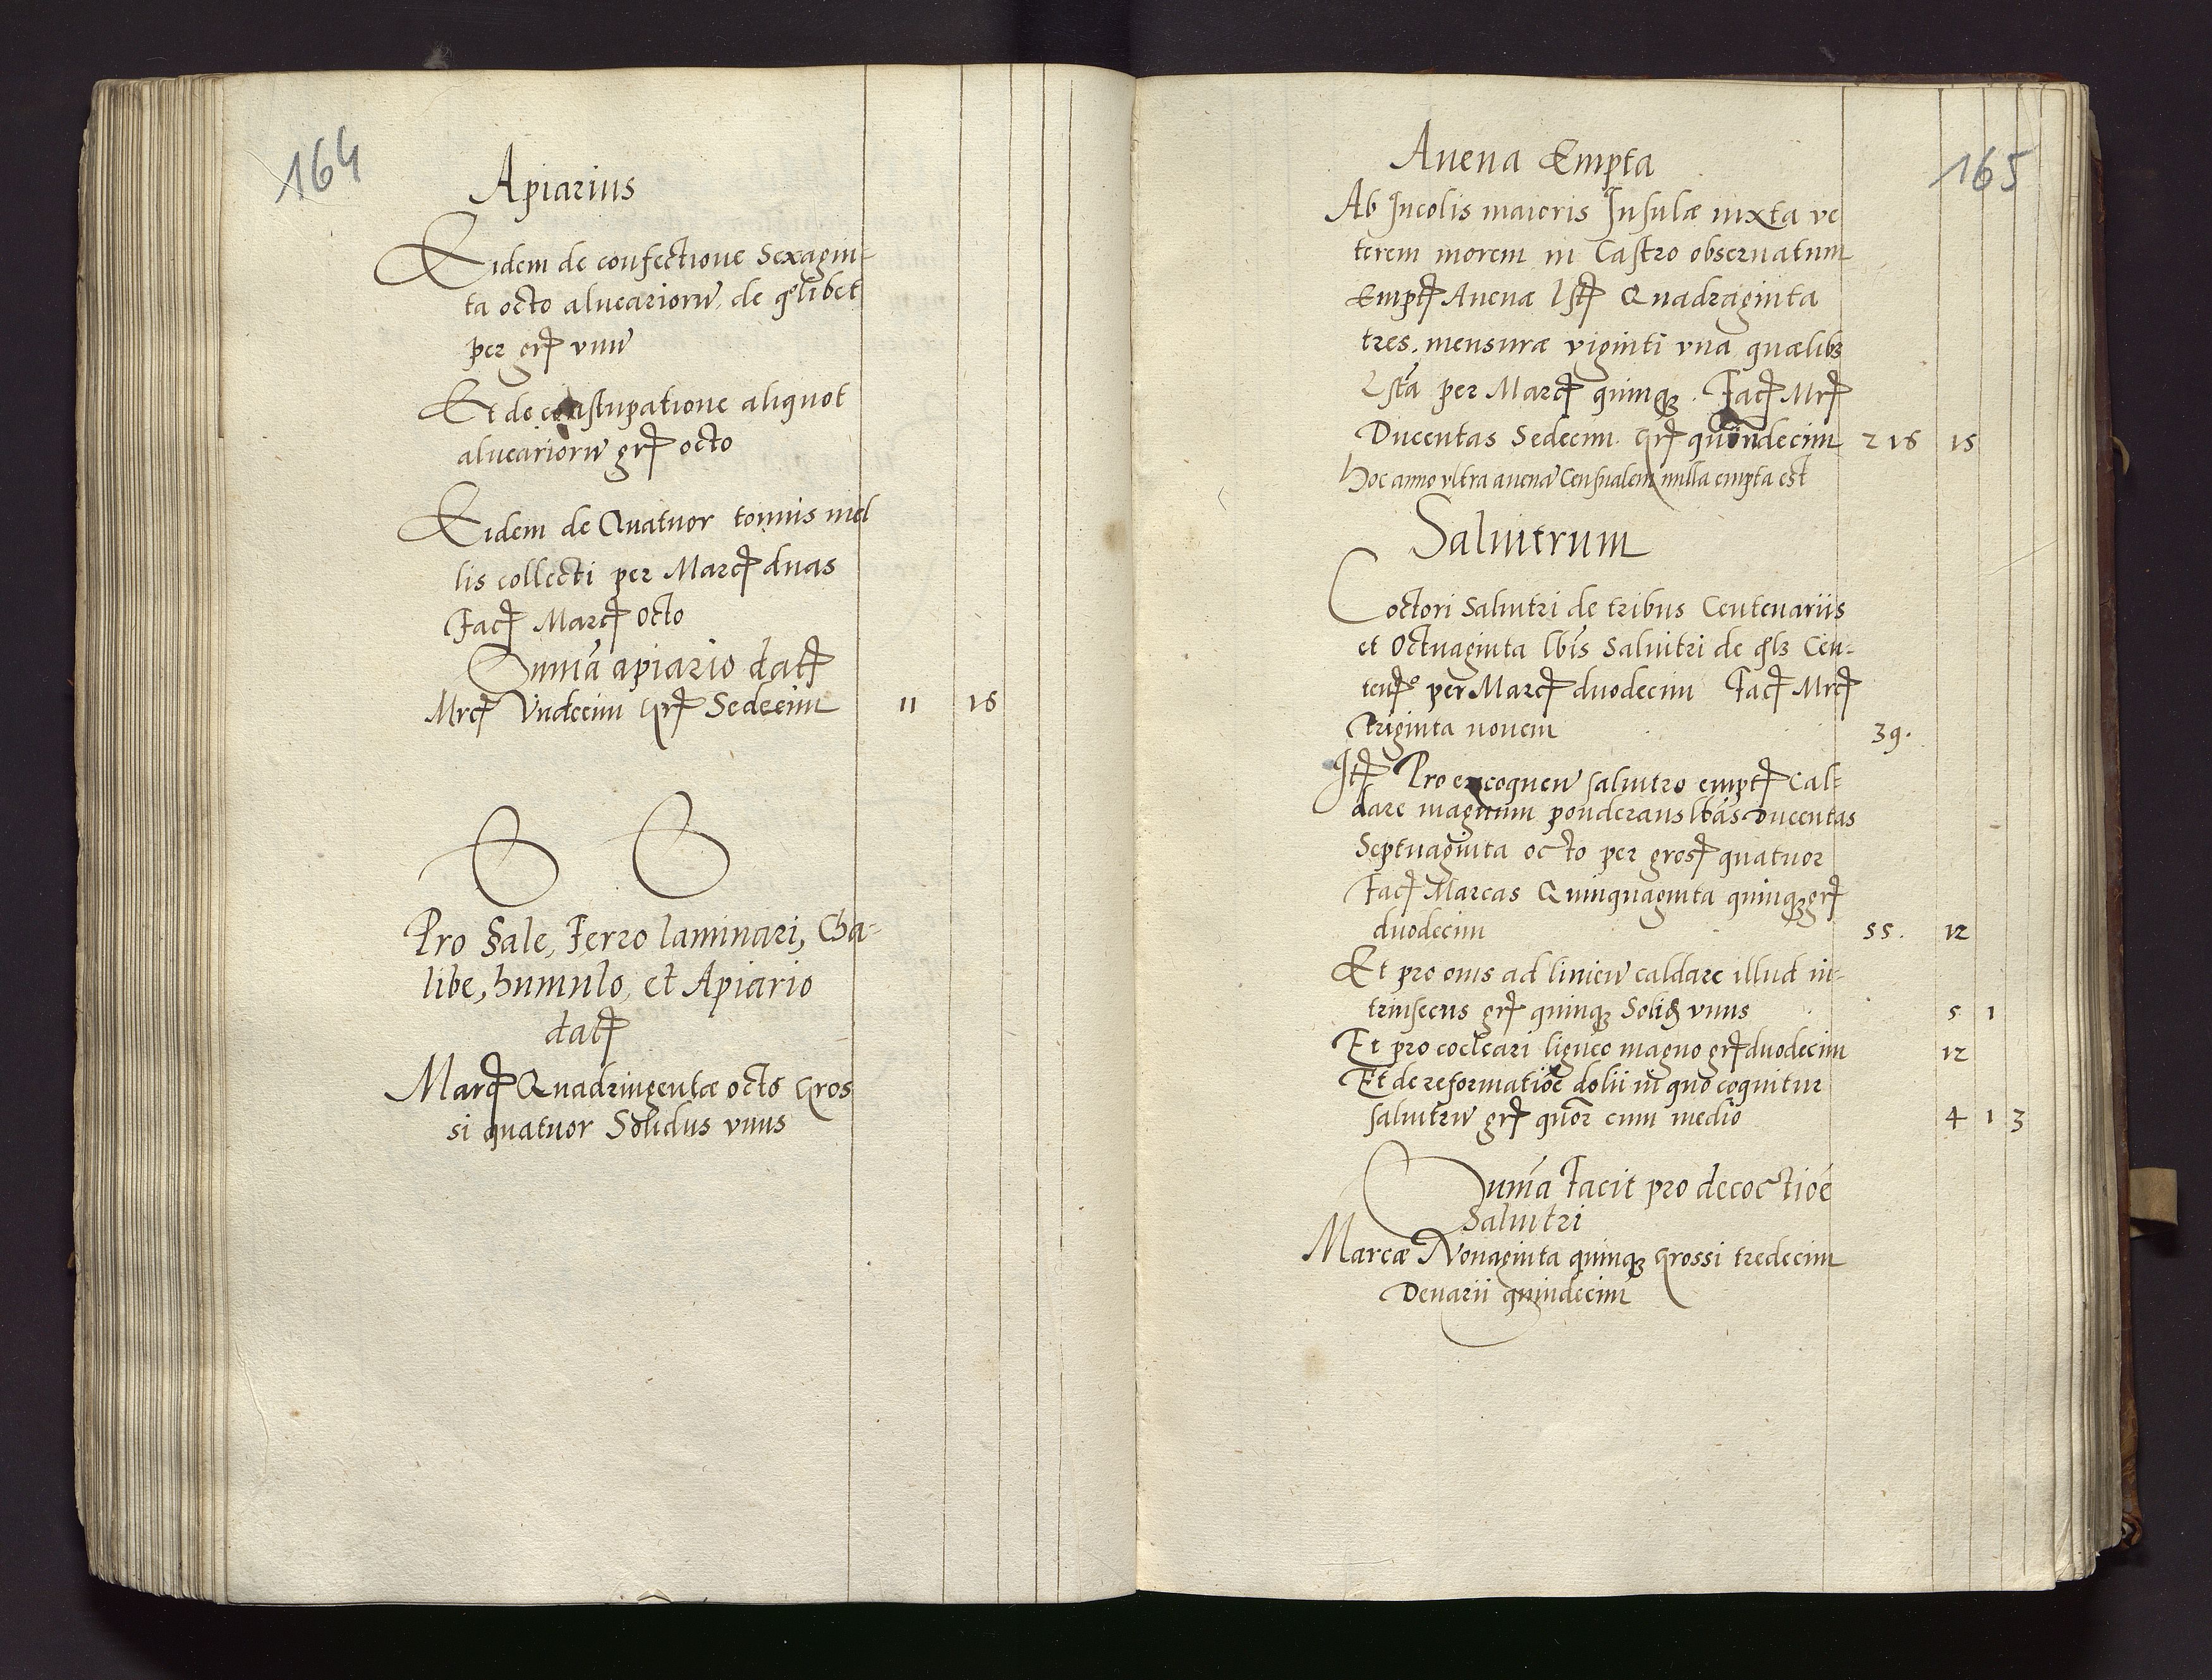 164
Apiarius
Eidem de confectione Sexagin-
ta octo aluearioru de qolibet
per grꝭ vnu
Et de constupatione aliquot
alueariorū grꝭ octo
Eidem de Quatuor tonnis mel
lis collecti per Marcꝭ duas
Facꝭ Marcꝭ Octo
Summa apiario datꝭ
Mrcꝭ Vndecim Grꝭ Sedecim 11 16
Pro Sale, Ferro laminari, Cha-
libe, humulo, et Apiario
datꝭ
Marcꝭ Quadringentæ octo Gros
si quatuor Solidus vnus
165
Auena Empta
Ab Incolis maioris Insulæ iuxta ve
terem morem in Castro obseruatum
Emptꝭ Auenæ lstꝭ Quadraginta
tres. mensuræ viginti vna quælibꝫ
Lsta per Marcꝭ quinqꝫ. Facꝭ Mrcꝭ
Ducentas Sedecim. Grꝭ quindecim 216 15
Hoc anno vltra auenā Censualem nulla empta est
Saluitrum
Coctori Saluitri de tribus Centenariis
et Octuaginta lbis Saluitri de qlꝫ Cen-
tenꝭo per Marcꝭ duodecim Facꝭ Mrcꝭ
Triginta nouem 39.
Itꝭ Pro excoquen saluitro emptꝭ Cal-
dare magnum ponderans lbas Ducentas
Septuaginta octo per grosꝭ quatuor
Facꝭ Marcas Quinquaginta quinqꝫ grꝭ
duodecim 55. 12
Et pro ouis ad linien caldare illud in-
trinsecus grꝭ quinqꝫ Solid vnus 5 1
Et pro cocleari ligneo magno grꝭ duodecim 12
Et de reformatiōe dolii in quo coquitur
saluitrū grꝭ quor cum medio 4 1 3
Summa Facit pro decoctiōe
Saluitri
Marcæ Nonaginta quinqꝫ Grossi tredecim
Denarii quindecim